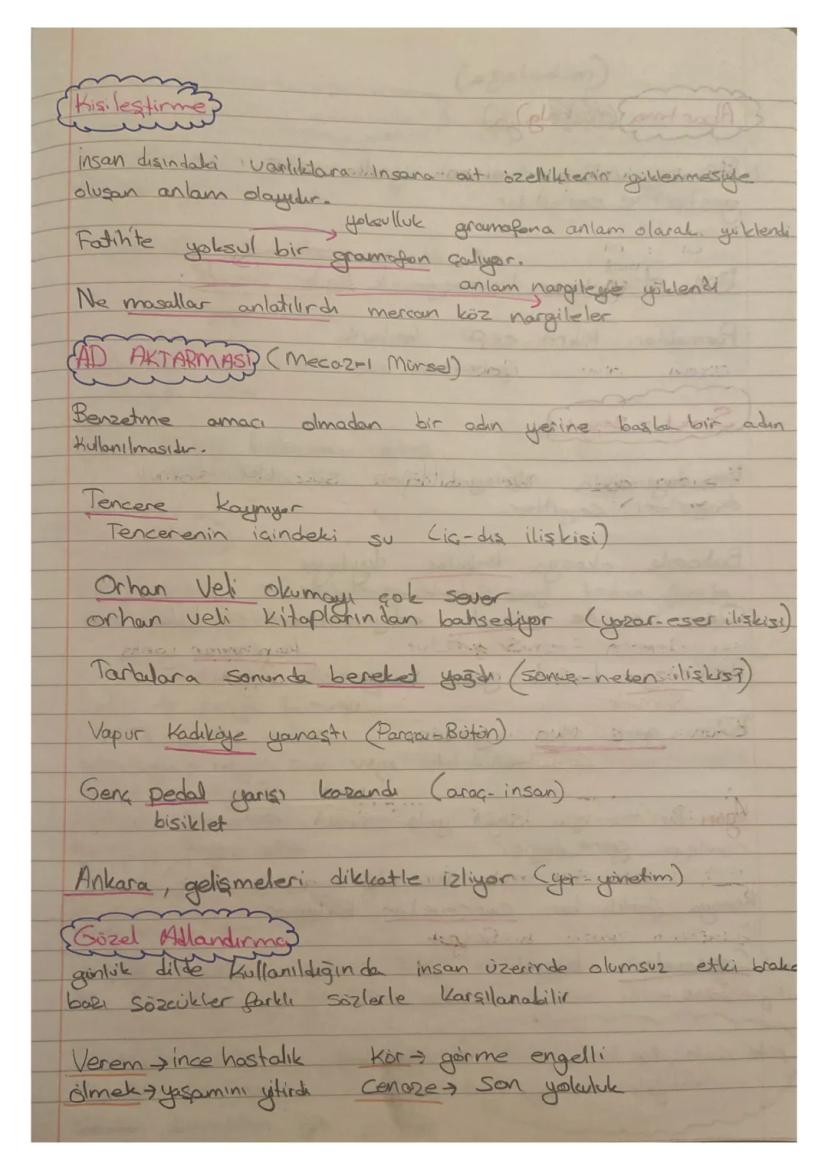 Kişileştirme
insan dışındaki varlıklara insana ait özelliklerin yüklenmesiyle
oluşan anlam olayıdır.
yoksulluk gramofona anlam olarak yüklendi
Fatih'te yoksul bir gramofon çalıyor.
anlam nargileye yüklendi
Ne masallar anlatılırdı mercan köz nargileler
AD AKTARMASI (Mecaz-ı Mürsel)
Benzetme amacı olmadan bir adın yerine başka bir adın
kullanılmasıdır.
Tencere kaynıyor
Tencerenin içindeki su (iç-dış ilişkisi)
Orhan Veli okumayı çok sever
orhan veli kitaplarından bahsediyor (yazar-eser ilişkisi)
Tarlalara sonunda bereket yağdı (sonuç-neden ilişkisi)
Vapur Kadıköye yanaştı (Parça-Bütün)
Genç pedal yarışı kazandı (araç-insan)
bisiklet
Ankara, gelişmeleri dikkatle izliyor (yer-yönetim)
Güzel Adlandırma
günlük dilde kullanıldığında insan üzerinde olumsuz etki bıraka
bazı sözcükler farklı sözlerle karşılanabilir
Verem → ince hastalık Kör → görme engelli
ölmek → yaşamını yitirdi Cenaze → son yolculuk